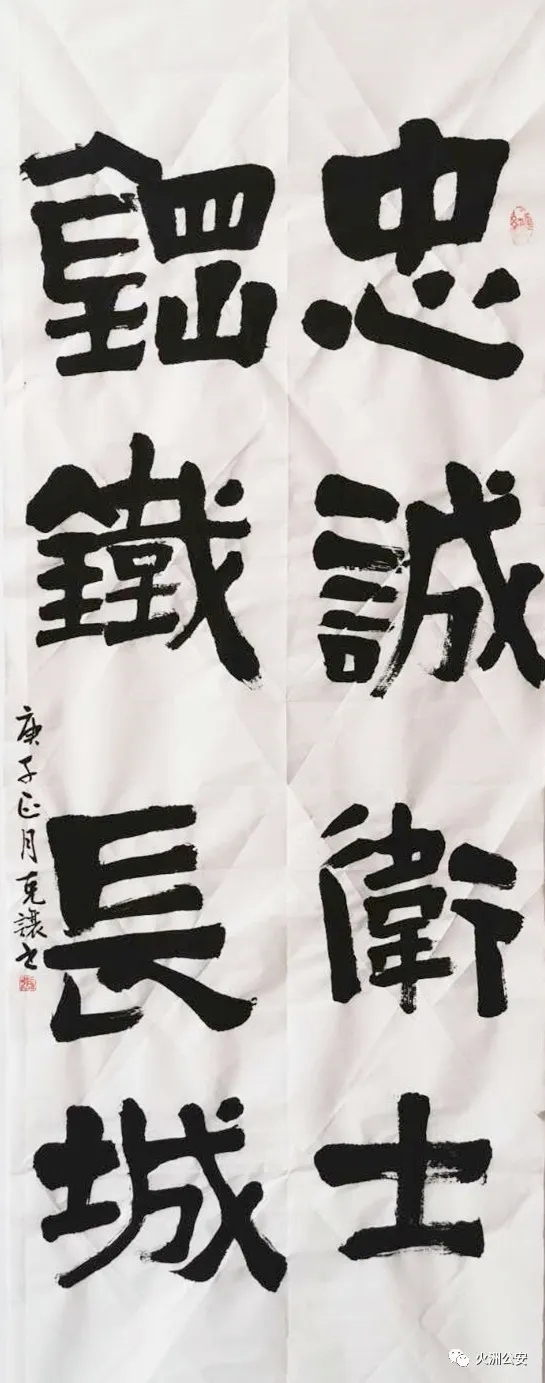 忠誠衛士
鋼鐵長城
庚子正月克讓书
火洲公安